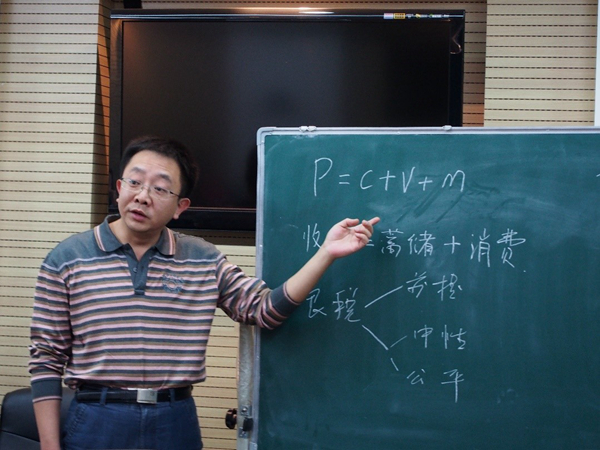 P = c + v + m
收 = 蓄储 + 消费
良税
中性
公平